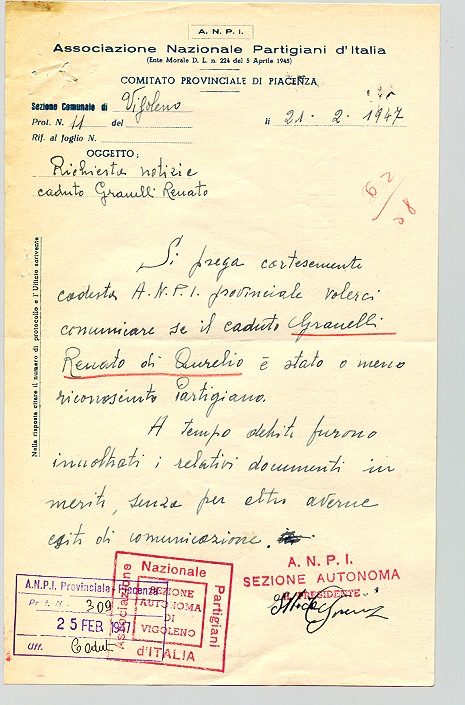 A. N. P. I.
Associazione Nazionale Partigiani d'Italia
(Ente Morale D. L. n. 224 del 5 Aprile 1945)
COMITATO PROVINCIALE DI PIACENZA
Sezione Comunale di Vigoleno
Prot. N. 11 del
li 21. 2. 1947
Rif. al foglio N.
OGGETTO:
Richiesta notizie
caduto Granelli Renato
Nella risposta citare il numero di protocollo e l'Ufficio scrivente
Si prega cortesemente
codesta A.N.P.I. provinciale volerci
comunicare se il caduto Granelli
Renato di Aurelio è stato o meno
riconosciuto Partigiano.
A tempo debito furono
inoltrati i relativi documenti in
merito, senza per altro averne
esiti di comunicazione.
A. N. P. I.
SEZIONE AUTONOMA
IL PRESIDENTE
A.N.P.I. Provinciale - Piacenza
Pr t. N. 309
25 FEB 1947
Uff. Caduti
Associazione
Nazionale
Partigiani
d'ITALIA
SEZIONE
AUTONOMA
DI
VIGOLENO